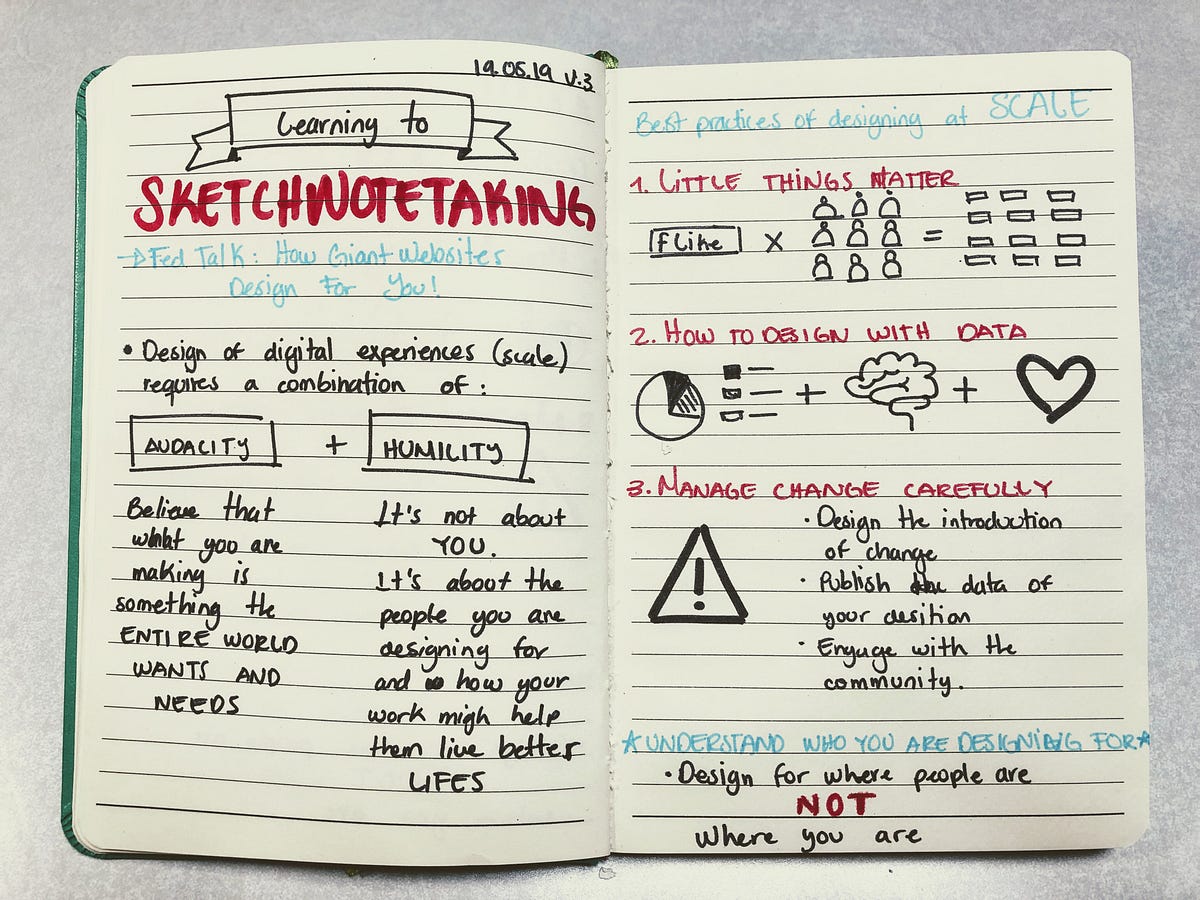 19.05.19 V.3
Learning to
SKETCHNOTETAKING
Fed Talk: How Giant Websites
Design For You!
• Design of digital experiences (scale)
requires a combination of:
AUDACITY + HUMILITY
Believe that
what you are
making is
something the
ENTIRE WORLD
WANTS AND
NEEDS
It's not about
YOU.
It's about the
people you are
designing for
and how your
work migh help
them live better
LIFES
Best practices of designing at SCALE
1. LITTLE THINGS MATTER
f Like x =
2. HOW TO DESIGN WITH DATA
+ +
3. MANAGE CHANGE CAREFULLY
!
• Design the introduction
of change
• Publish the data of
your desition
• Engage with the
community.
★UNDERSTAND WHO YOU ARE DESIGNING FOR★
• Design for where people are
NOT
where you are